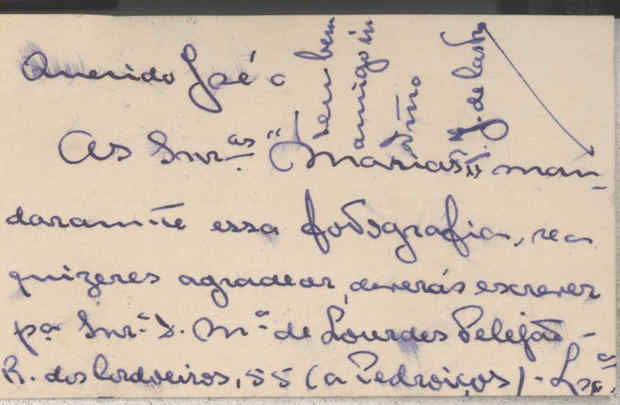 Querido José
As Snr.as "Marias" man-
daram-te essa fotografia, se a
quizeres agradecer, deverás escrever
pa Snr.a D. M.a de Lourdes Pelejão -
R. dos Cordoeiros, 55 (a Pedroiços) - Lx.a
teu bem
amigo in
timo
J. de Castro